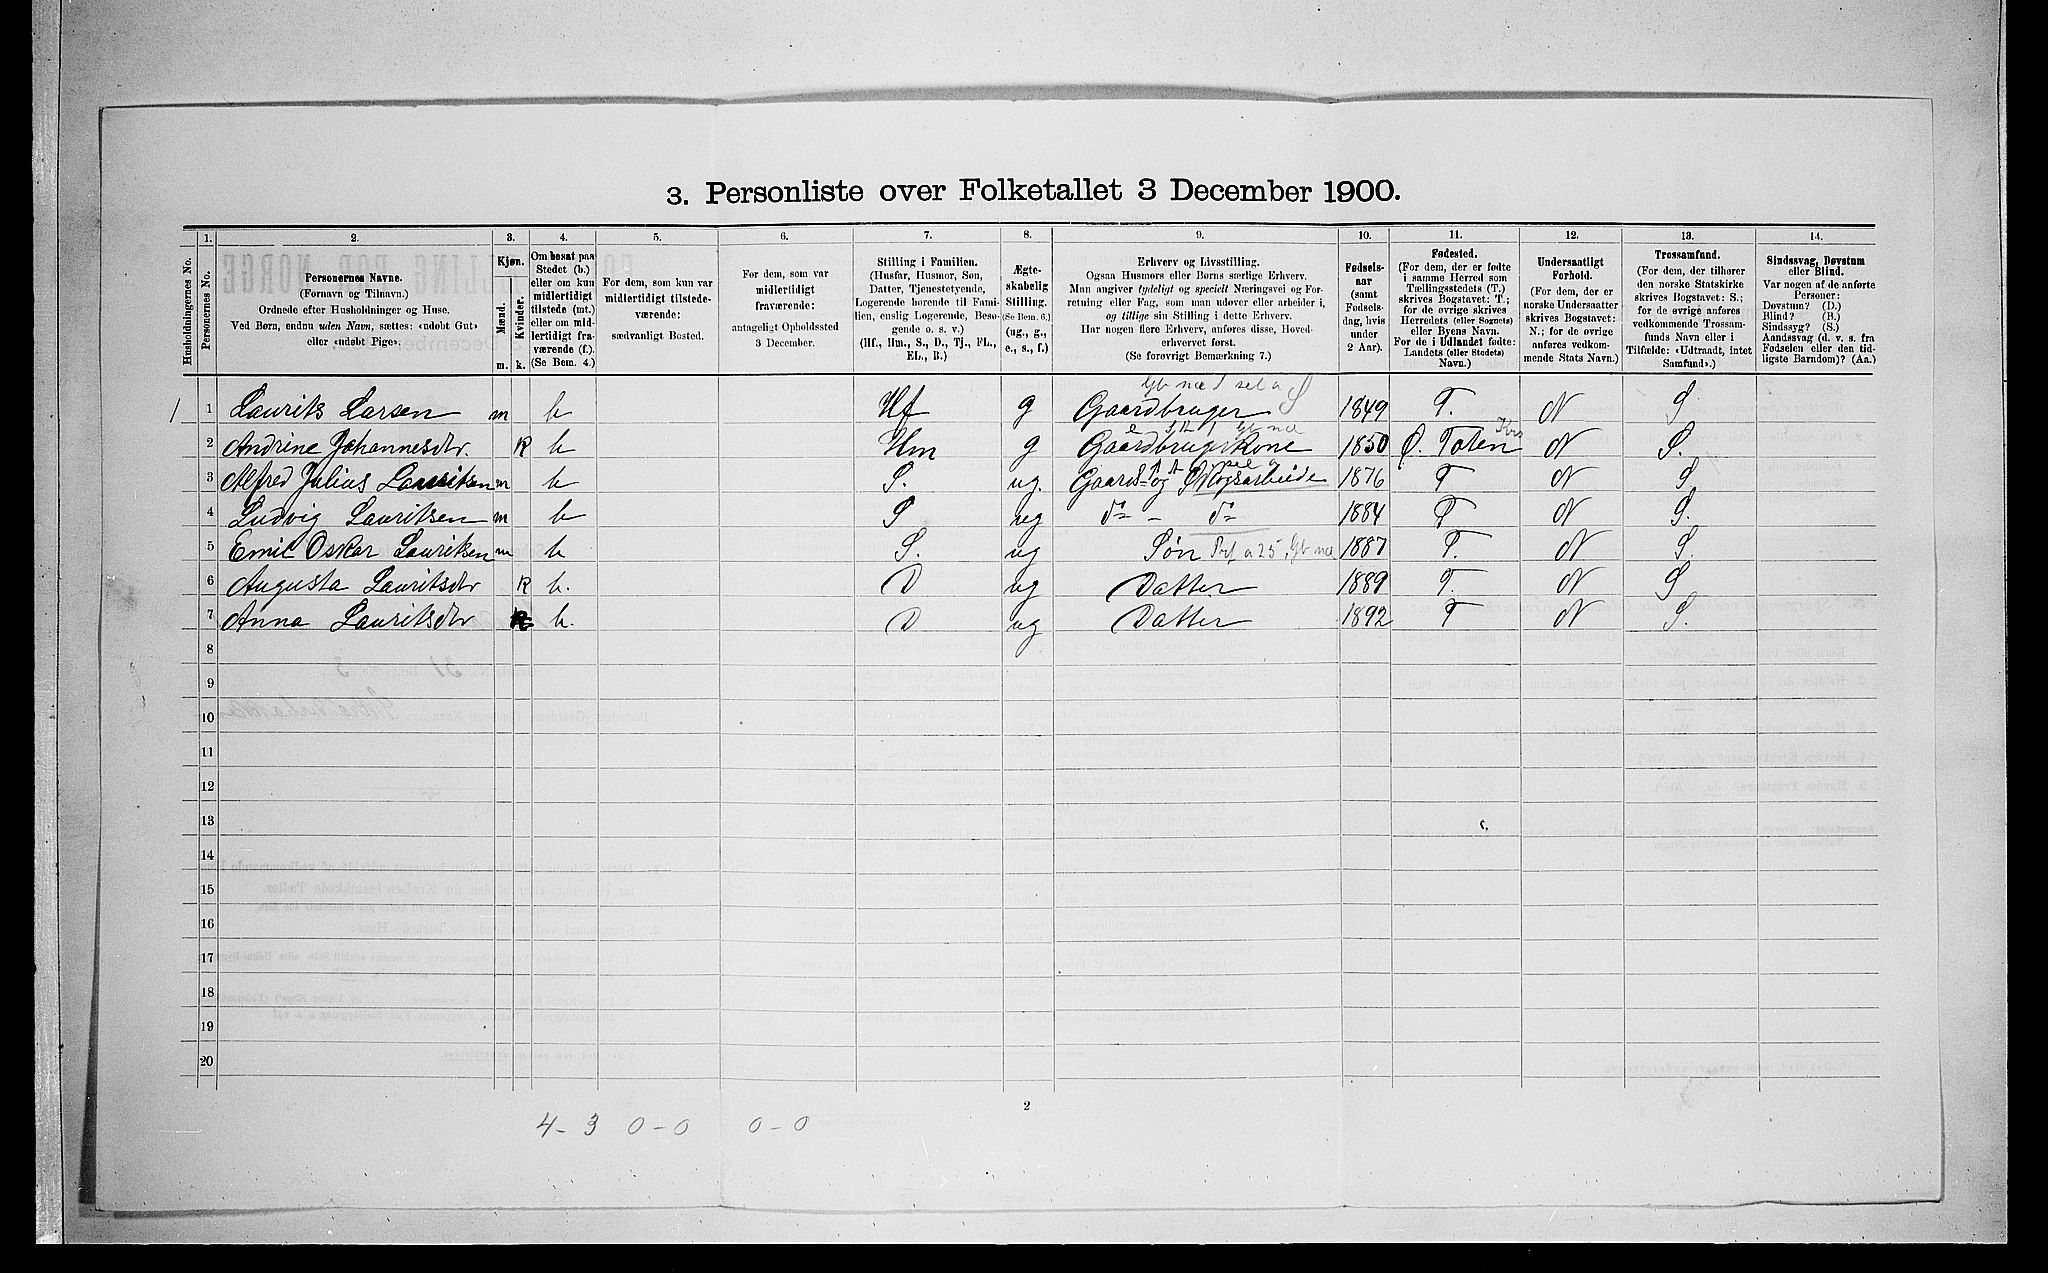 3. Personliste over Folketallet 3 December 1900.
Husholdningernes No.
1.
Personernes No.
2.
Personernes Navne.
(Fornavn og Tilnavn.)
Ordnede efter Husholdninger og Huse.
Ved Børn, endnu uden Navn, sættes: «udøbt Gut»
eller «udøbt Pige».
3.
Kjøn.
Mænd.
Kvinder.
m.
k.
4.
Om bosat paa
Stedet (b.)
eller om kun
midlertidigt
tilstede (mt.)
eller om mid-
lertidigt fra-
værende (f.).
(Se Bem. 4.)
5.
For dem, som kun var
midlertidigt tilstede-
værende:
sædvanligt Bosted.
6.
For dem, som var
midlertidigt
fraværende:
antageligt Opholdssted
3 December.
7.
Stilling i Familien.
(Husfar, Husmor, Søn,
Datter, Tjenestetyende,
Logerende hørende til Fami-
lien, enslig Logerende, Besø-
gende o. s. v.)
(Hf., Hm., S., D., Tj., FL.,
EL., B.)
8.
Ægte-
skabelig
Stilling.
(Se Bem. 6.)
(ug., g.,
e., s., f.)
9.
Erhverv og Livsstilling.
Ogsaa Husmors eller Børns særlige Erhverv.
Man angiver tydeligt og specielt Næringsvei og For-
retning eller Fag, som man udøver eller arbeider i,
og tillige sin Stilling i dette Erhverv.
Har nogen flere Erhverv, anføres disse, Hoved-
erhvervet først.
(Se forøvrigt Bemærkning 7.)
10.
Fødsels-
aar
(samt
Fødsels-
dag, hvis
under
2 Aar).
11.
Fødested.
(For dem, der er fødte
i samme Herred som
Tællingsstedets (T.)
skrives Bogstavet: T.;
for de øvrige skrives
Herredets (eller Sognets)
eller Byens Navn.
For de i Udlandet fødte:
Landets (eller Stedets)
Navn.)
12.
Undersaatligt
Forhold.
(For dem, der er
norske Undersaatter
skrives Bogstavet:
N.; for de øvrige
anføres vedkom-
mende Stats Navn.)
13.
Trossamfund.
(For dem, der tilhører
den norske Statskirke
skrives Bogstav: S.;
for de øvrige anføres
vedkommende Trossam-
funds Navn eller i
Tilfælde: «Udtraadt, intet
Samfund».)
14.
Sindssvag, Døvstum
eller Blind.
Var nogen af de anførte
Personer:
Døvstum? (D.)
Blind? (B.)
Sindssyg? (S.)
Aandssvag (d. v. s. fra
Fødselen eller den tid-
ligste Barndom)? (Aa.)
1 1 Laurits Larsen m b Hf g Gaardbruger S 1849 T. N S
2 Andrine Johannesdtr. k b Hm g Gaardbrugerkone 1850 Ø. Toten Kra N S.
3 Alfred Julius Lauritsen m b S. ug. Gaards- og Skogsarbeide 1876 T N S
4 Ludvig Lauritsen m b S ug do - do 1884 T N S.
5 Emil Oskar Lauritsen m b S. ug Søn 1887 T. N S.
6 Augusta Lauritsdtr k b. D ug Datter 1889 T. N S
7 Anna Lauritsdtr k b. D ug Datter 1892 T N S.
8
9
10
11
12
13
14
15
16
17
18
19
20
2
4-3 0-0 0-0